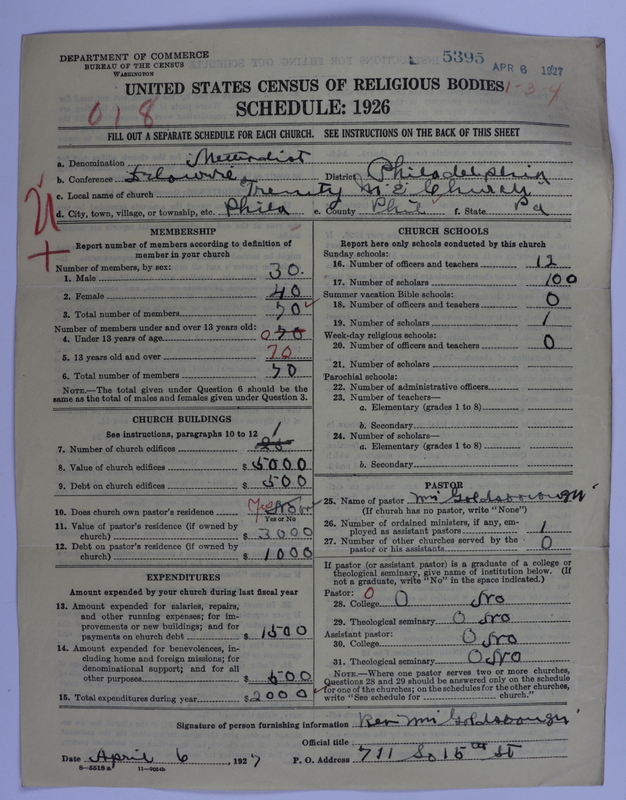 DEPARTMENT OF COMMERCE
BUREAU OF THE CENSUS
WASHINGTON
5395 APR 6 1927
UNITED STATES CENSUS OF RELIGIOUS BODIES
1-3-4
SCHEDULE: 1926
018
FILL OUT A SEPARATE SCHEDULE FOR EACH CHURCH. SEE INSTRUCTIONS ON THE BACK OF THIS SHEET
a. Denomination Methodist
b. Conference District Philadelphia
c. Local name of church Trinity M E Church
d. City, town, village, or township, etc. Phila e. County Phil f. State Pa
MEMBERSHIP
Report number of members according to definition of
member in your church
Number of members, by sex:
1. Male 30.
2. Female 40
3. Total number of members 70
Number of members under and over 13 years old:
4. Under 13 years of age 0 70
5. 13 years old and over 70
6. Total number of members 70
NOTE.—The total given under Question 6 should be the
same as the total of males and females given under Question 3.
CHURCH BUILDINGS
See instructions, paragraphs 10 to 12
7. Number of church edifices 1
8. Value of church edifices $ 5000
9. Debt on church edifices $ 500
10. Does church own pastor's residence Yes
Yes or No
11. Value of pastor's residence (if owned by
church) $ 3000
12. Debt on pastor's residence (if owned by
church) $ 1000
EXPENDITURES
Amount expended by your church during last fiscal year
13. Amount expended for salaries, repairs,
and other running expenses; for im-
provements or new buildings; and for
payments on church debt $ 1500
14. Amount expended for benevolences, in-
cluding home and foreign missions; for
denominational support; and for all
other purposes $ 500
15. Total expenditures during year $ 2000
CHURCH SCHOOLS
Report here only schools conducted by this church
Sunday schools:
16. Number of officers and teachers 12
17. Number of scholars 100
Summer vacation Bible schools:
18. Number of officers and teachers 0
19. Number of scholars 1
Week-day religious schools:
20. Number of officers and teachers 0
21. Number of scholars
Parochial schools:
22. Number of administrative officers
23. Number of teachers—
a. Elementary (grades 1 to 8)
b. Secondary
24. Number of scholars—
a. Elementary (grades 1 to 8)
b. Secondary
PASTOR
25. Name of pastor Wm Goldsborough
(If church has no pastor, write "None")
26. Number of ordained ministers, if any, em-
ployed as assistant pastors 1
27. Number of other churches served by the
pastor or his assistants 0
If pastor (or assistant pastor) is a graduate of a college or
theological seminary, give name of institution below. (If
not a graduate, write "No" in the space indicated.)
Pastor: 0
28. College 0 No
29. Theological seminary 0 No
Assistant pastor:
30. College 0 No
31. Theological seminary 0 No
NOTE.—Where one pastor serves two or more churches,
Questions 28 and 29 should be answered only on the schedule
for one of the churches; on the schedules for the other churches,
write "See schedule for church."
Signature of person furnishing information Rev Wm Goldsborough
Official title
Date April 6, 1927 P. O. Address 711 So 15th St
8—5518a 11—9054b